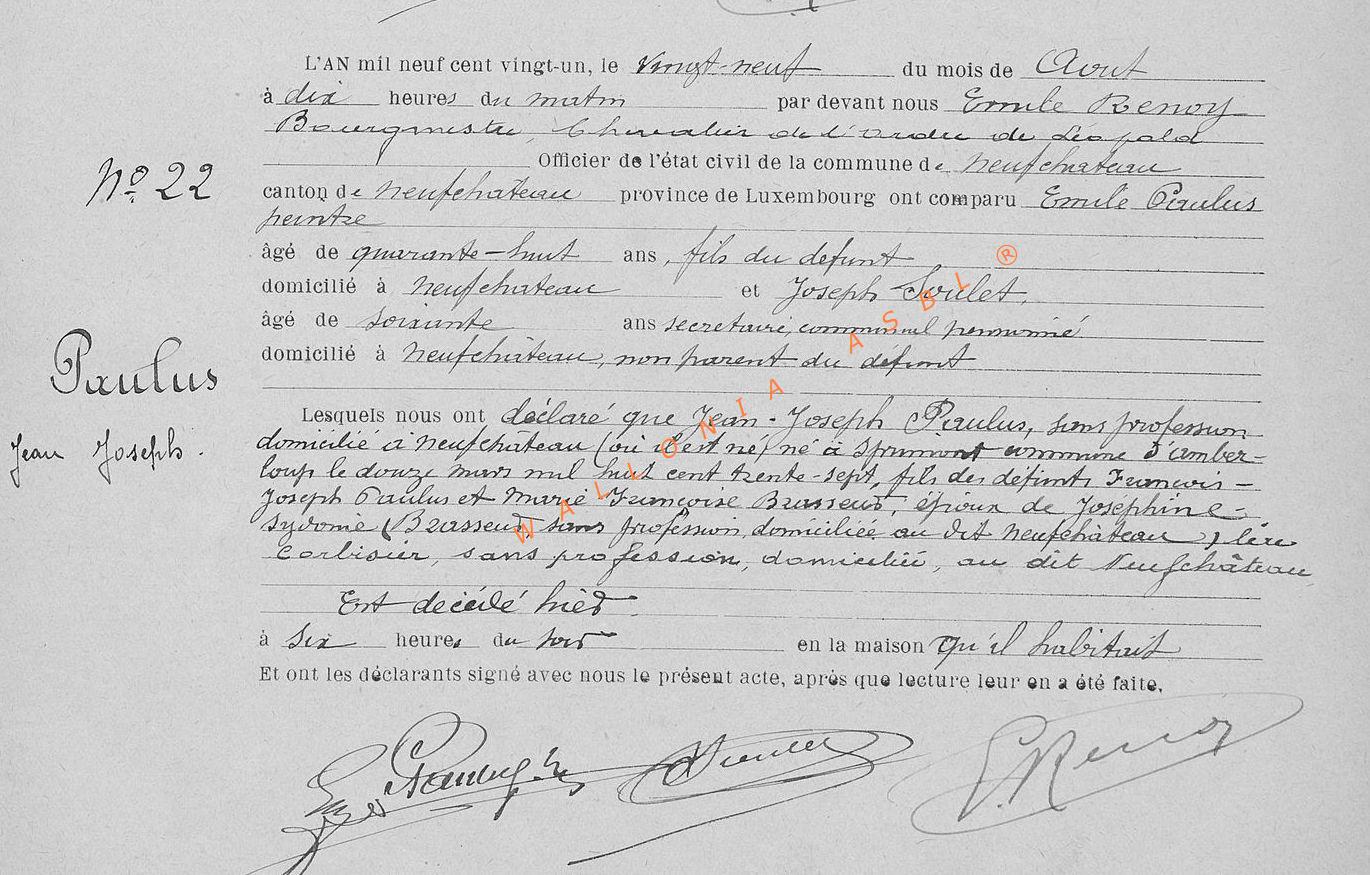 L'AN mil neuf cent vingt-un, le vingt-neuf du mois de Aout
à dix heures du matin par devant nous Emile Renoy
Bourgmestre, Chevalier de l'ordre de Léopold
Officier de l'état civil de la commune de Neufchateau
No 22
canton de Neufchâteau province de Luxembourg ont comparu Emile Paulus
peintre
âgé de quarante-huit ans, fils du défunt
domicilié à Neufchateau et Joseph
âgé de soixante ans secretaire communal pensionné
domicilié à Neufchâteau, non parent du défunt
Paulus
Jean Joseph.
Lesquels nous ont déclaré que Jean-Joseph Paulus, sans profession
domicilié à Neufchateau (où il est né) né à Sprimont commune d'amber-
loup le douze mars mil huit cent trente-sept, fils des défunts François-
Joseph Paulus et Marie-Françoise Brasseur, époux de Joséphine-
Sydonie (Brasseur, sans profession, domiciliée au dit Neufchâteau)
Corbisier, sans profession, domiciliée, au dit Neufchâteau
Est décédé hier
à six heures du soir en la maison qu'il habitait
Et ont les déclarants signé avec nous le présent acte, après que lecture leur en a été faite.
E. Renoy
WALLONIA ASBL ®